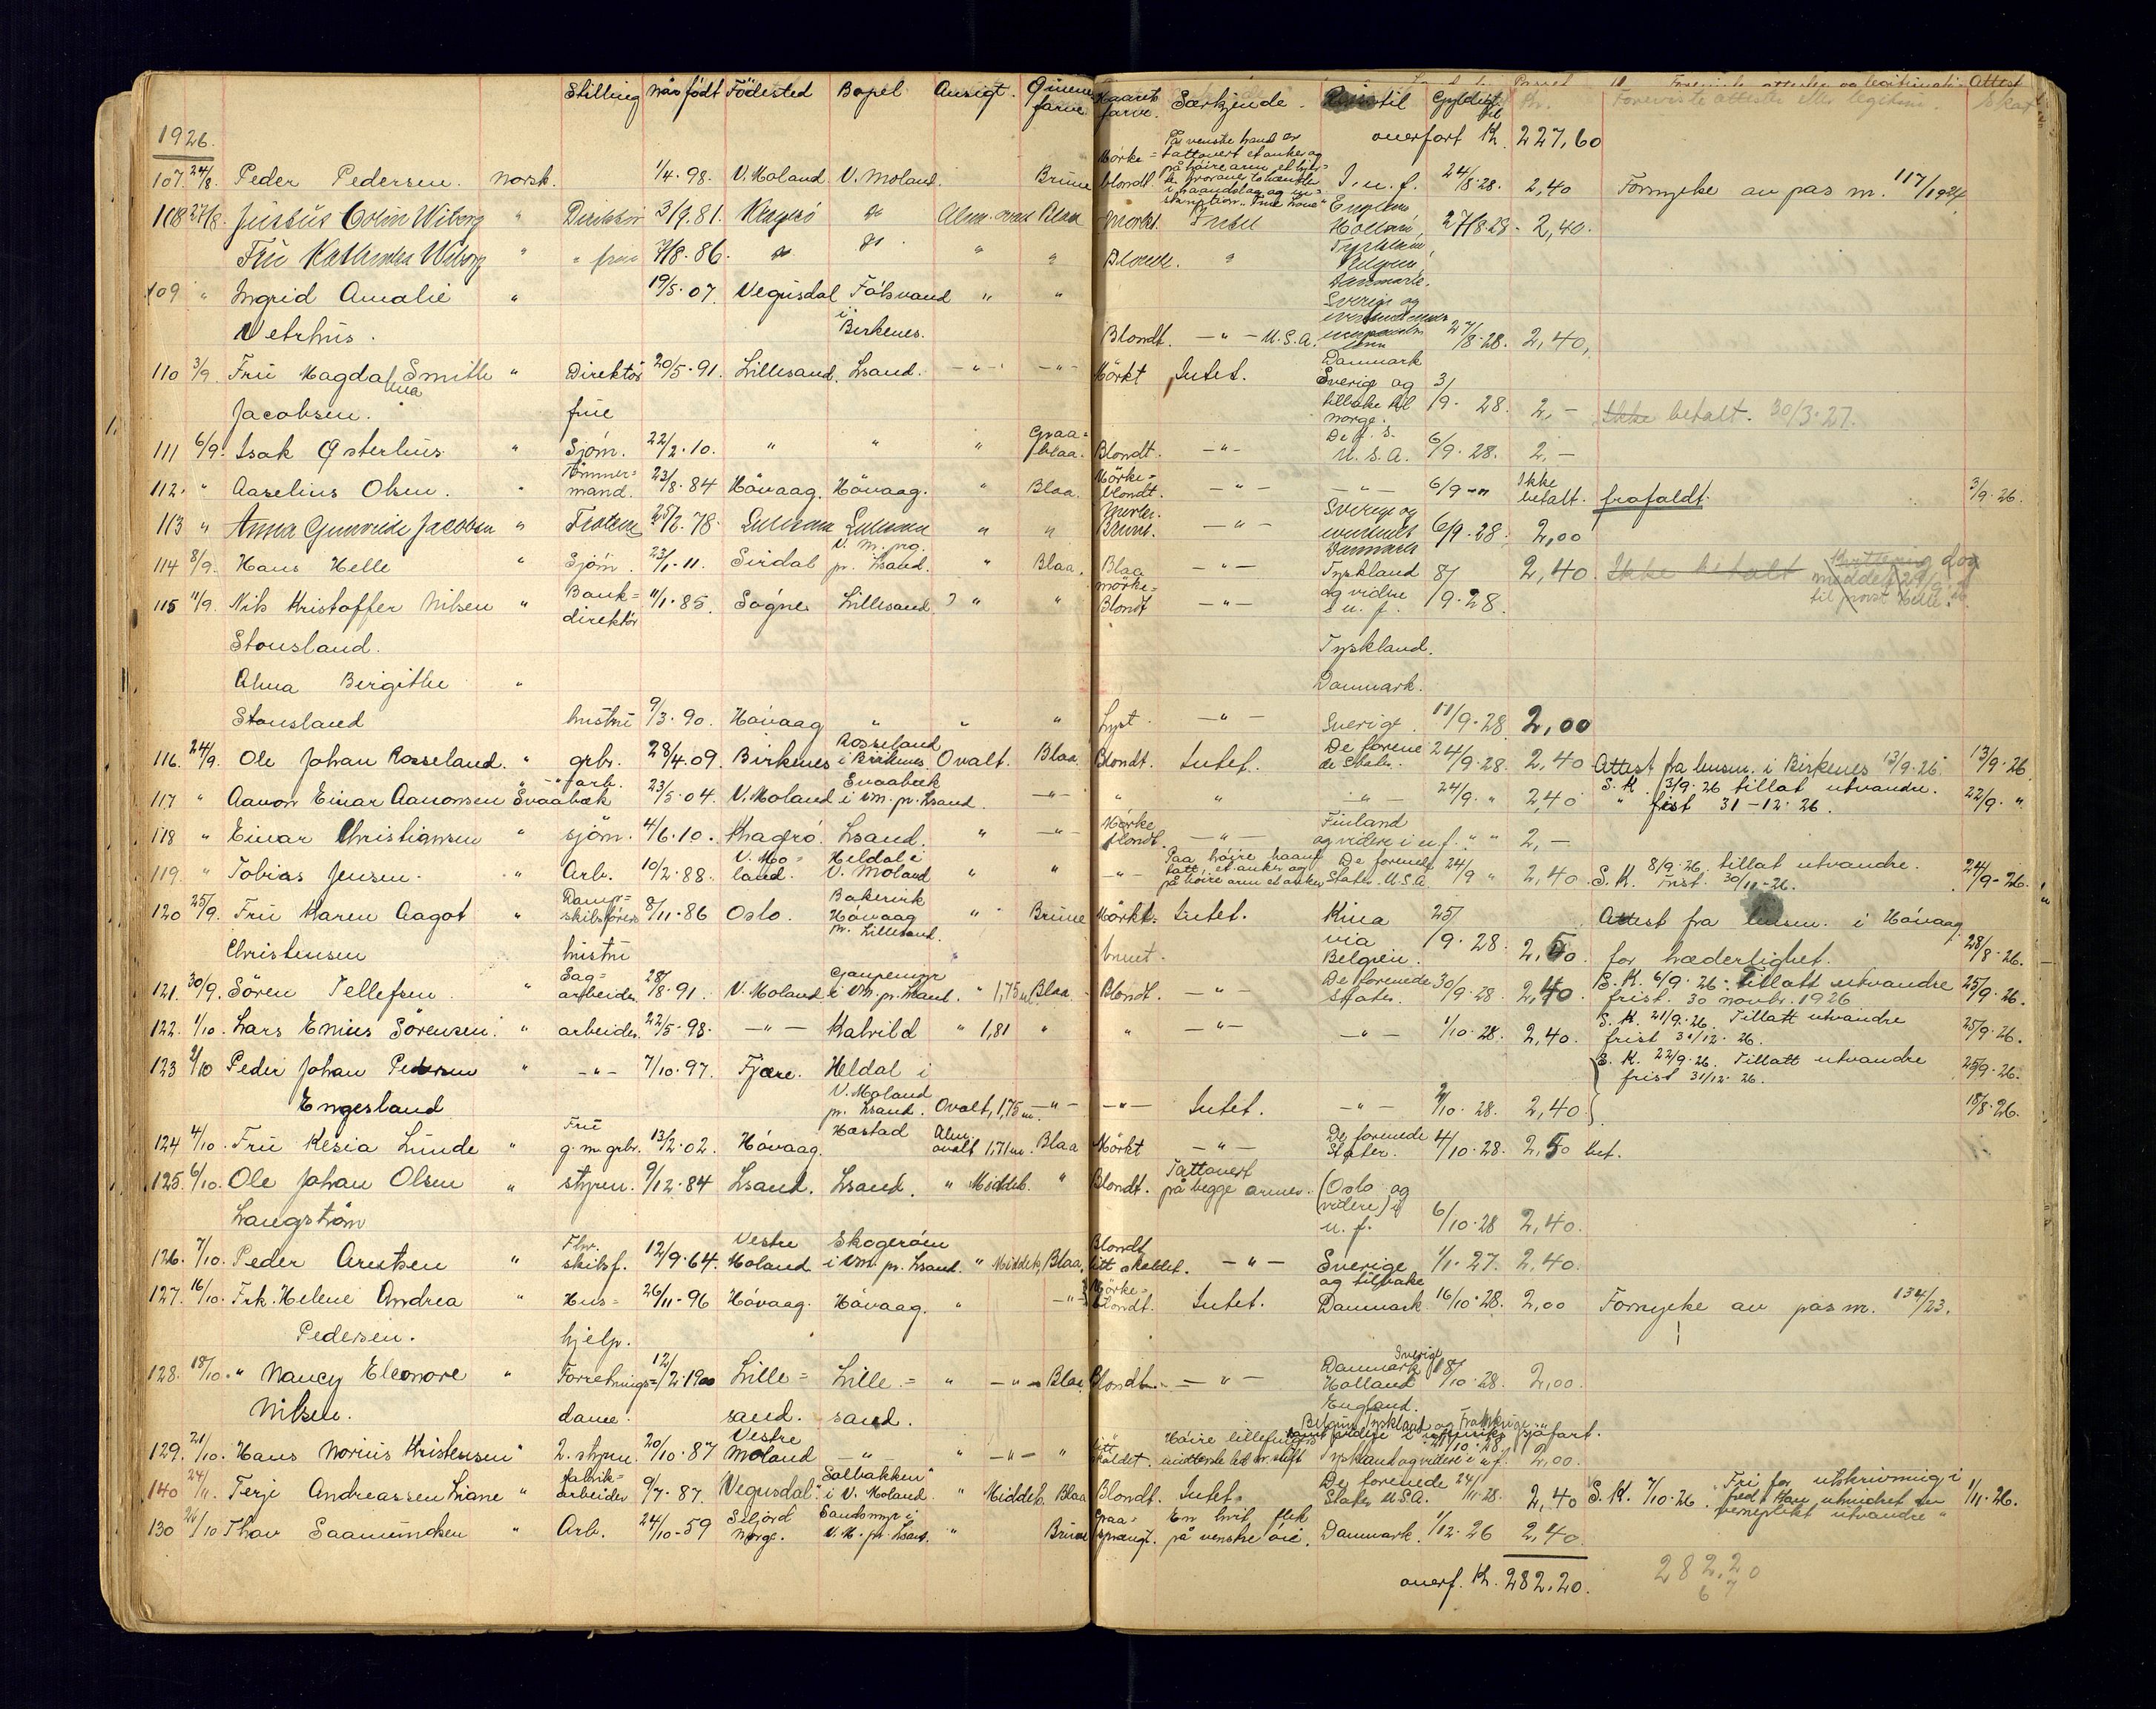 Stilling Når født Födested Bopel Ansigt. Öinene farve Haarets farve. Særkjende. til Gyldigt til Kr. Foreviste attester eller legitim. Attest Skat
1926. overfört Kr. 227,60
107. 24/8. Peder Pedersen. Norsk. 1/4. 98. V. Moland. V. Moland. Brune Mörke=blondt. På venstre haand er tattovert et anker og på höire arm et hjerte i haandslag og inskription "True Love" I. u. f. 24/8. 28. 2,40 Fornyelse av pas m. 117/1924
108 27/8. Justus Colin Wiborg " Direktör 3/9. 81. Kragerö do Alm. oval Blaa Mörkt. Intet England Holland, 27/8 28. 2,40.
Fru Kathinka Wiborg " " frue 7/8. 86. do do. " " Blond. " Tyskland, Belgien, Danmark.
109 " Ingrid Amalie " 19/5. 07. Vegusdal Fölsvand " " Sverige og
Vetrhus. i Birkenes. Blondt. — " — U.S.A. 27/8. 28. 2,40,
110 3/9. Fru Magdalena Smith " Direktör 20/5. 91. Lillesand. Lsand. — " — — " — Mörkt Intet. Danmark Sverige og tilbake til Norge. 3/9. 28. 2,— Ikke betalt. 30/3. 27.
Jacobsen. frue
111 6/9. Isak Østerhus " Sjöm. 22/2. 10. " " " Graa=blaa. Blondt. — " — De f. S. U. S. A. 6/9. 28. 2,—
112. " Aaselius Olsen. " Tömmer=mand. 23/8. 84 Hövaag. Hövaag. " Blaa. Mörke=blondt. — " — — " — 6/9 — " Ikke betalt. frafaldt. 3/9. 26.
113 " Anna Gunvalde Jacobsen " 25/8. 78. " " Brunt. — " — Sverige og Danmark 6/9. 28 2,00
114 8/9. Hans Helle " Sjöm. 23/1. 11. Sirdal V. M. pr. Lsand. " Blaa. Blaa — " — Tyskland og videre i u. f. 8/9. 28. 2,40. Ikke betalt Kvittering dog meddelt 29/9. 26 til Helle.
115 11/9. Nils Kristoffer Nilsen " Bank=direktör 11/1. 85. Sögne Lillesand. " " mörke=Blondt — " —
Stousland. Tyskland.
Alma Birgithe " Danmark.
Stousland hustru 9/3. 90. Hövaag " " " Lyst. — " — Sverige. 11/9. 28 2,00
116. 24/9. Ole Johan Rosseland. " grbr. 28/4. 09. Birkenes Rosseland i Birkenes. Ovalt. Blaa Blondt. Intet. De forenede Stater. 24/9. 28. 2,40 Attest fra lensm. i Birkenes 13/9. 26. 13/9. 26
117 " Aanon Einar Aanonsen Svaabæk — " — arb. 23/5. 04. V. Moland Svaabæk i Vm. pr. Lsand. — " — " " — " — 24/9. " 2,40 S. K. 3/9. 26 tillat utvandre. " frist 31 - 12. 26. 22/9. "
118 " Einar Christiansen " sjöm. 4/6. 10. Kragrö. Lsand. " — " — Mörke blondt. — " — Finland og videre i u. f. " " 2,—
119. " Tobias Jensen. " Arb. 10/2. 88. V. Mo=land. Heldal i V. Moland " " — " — Paa höire haand tatt. et anker og på höire arm et anker De forenede Stater. U.S.A. 24/9 " 2,40 S. K. 8/9. 26. tillat utvandre. Frist. 30/11 - 26. 24/9 - 26.
120 25/9. Fru Karen Aagot " Damp=skibsförers 8/11. 86 Oslo. Bakervik Hövaag pr. Lillesand. " Brune Mörkt. Intet. Kina via Belgien. 25/9. 28. 2,50. Attest fra lensm. i Hövaag
Christensen hustru brunt. for hæderlighet. 28/8. 26.
121. 30/9. Sören Tellefsen. " Sag=arbeider. 28/8. 91. V. Moland Gaupemyr i Vm. pr. Lsand. " 1,75 m Blaa Blondt. — " — De forenede Stater. 30/9. 28 2,40 S. K. 6/9. 26. Tillatt utvandre frist. 30 novbr. 1926 25/9. 26.
122. 1/10. Lars Enius Sörensen. " arbeider. 22/5. 98. — " — Kalvild " 1,81 " " — " — — " — 1/10. 28. 2,40. S. K. 21/9. 26. Tillatt utvandre frist 31/12. 26. 25/9. 26.
123 2/10 Peder Johan Pedersen " — " — 7/10. 97. Fjære. Heldal i V. Moland S. K. 22/9. 26. Tillatt utvandre frist 31/12. 26. 25/9. 26.
Engesland pr. Lsand. Ovalt, 1,75 m. — " — — " — Intet. — " — 2/10. 28. 2,40. 18/8. 26.
124 4/10. Fru Kesia Lunde " Fru g. m. grbr. 13/2. 02. Hövaag. Hæstad Alm. ovalt 1,71 m. Blaa Mörkt — " — De forenede Stater. 4/10. 28. 2,50
125. 6/10. Ole Johan Olsen " styrm. 9/12. 84 Lsand. Lsand. " Middels. " Blondt. Tattovert på begge armer. (Oslo og videre) i u. f. 6/10. 28 2,40.
Langström
126. 7/10. Peder Arntsen " skibsf. 12/9. 64. Vestre Moland. Skogeröen i Vm. pr. Lsand. " Middels, Blaa, Blondt litt skallet. — " — Sverige og tilbake 1/1. 27. 2,40.
127. 16/10. Frk. Helene Andrea " Hus= 26/11. 96 Hövaag. Hövaag. " — " — Mörke=blondt. Intet. Danmark 16/10. 28. 2,00 Fornyelse av pas m. 134/23.
Pedersen. hjelp.
128. 18/10. " Nancy Eleonore " Forretnings= 12/2. 1900 Lille= Lille= " — " — Blaa Blondt. — " — Sverige Danmark Holland England. 18/10. 28. 2,00.
Nilsen. dame. sand. sand.
Belgien, Tyskland og Frankrige samt videre i utenriks sjöfart.
129. 21/10. Hans Norius Kristensen " 2. styrm. 20/10. 87 Vestre Moland — " — " — " — " litt skaldet. Höire lillefingers midterste led er stift Tyskland og videre i u. f. 21/10. 28. 2,00.
140 24/11. Terje Andreassen Liane " fabrik=arbeider 9/7. 87. Vegusdal. "Solbakken" i V. Moland. " Middels. Blaa Blondt. Intet. De forenede Stater U.S.A. 24/11. 28. 2,40 S. K. 7/10. 26. Fri for utskrivning i fred. Kan utvandre 1/11. 26.
130 26/10 Thov Saamundsen " Arb. 24/10 - 59 Seljord Norge. Sandsmyr i V. M. pr. Lsand. " Brune Graa=sprængt. En hvit flek på venstre öie. Danmark. 1/12. 26 2,40.
overf. Kr. 282,20. 282,20